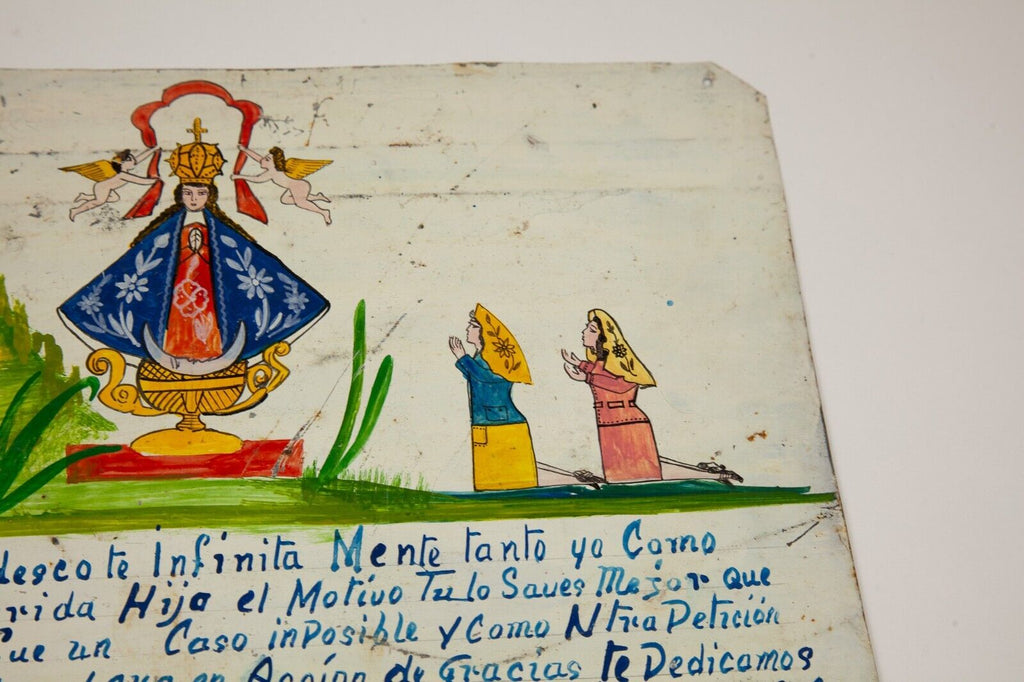 descote Infinita Mente tanto yo Como
rida Hija el Motivo Tu lo Saves Mejor que
ue un Caso inPosible y Como Ntra Petición
en Acción de Gracias te Dedicamos